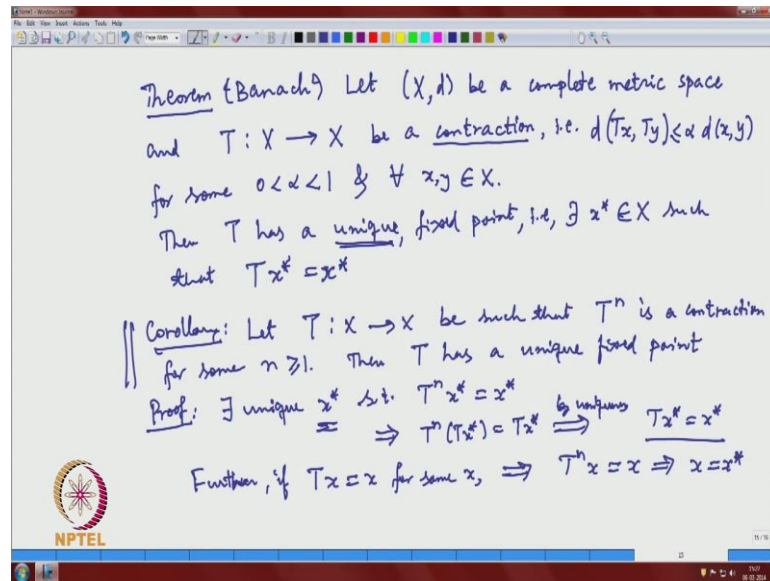 Note1 - Windows Journal
File Edit View Insert Actions Tools Help
Page Width
Theorem (Banach) Let (X, d) be a complete metric space
and T : X → X be a contraction, i.e. d(Tx, Ty) ≤ α d(x, y)
for some 0 < α < 1 & ∀ x, y ∈ X.
Then T has a unique, fixed point, i.e, ∃ x* ∈ X such
that Tx* = x*
Corollary: Let T : X → X be such that Tⁿ is a contraction
for some n ≥ 1. Then T has a unique fixed point
Proof: ∃ unique x* s.t. Tⁿx* = x*
⇒ Tⁿ(Tx*) = Tx* by uniqueness ⇒ Tx* = x*
Further, if Tx = x for some x, ⇒ Tⁿx = x ⇒ x = x*
NPTEL
15 / 16
15